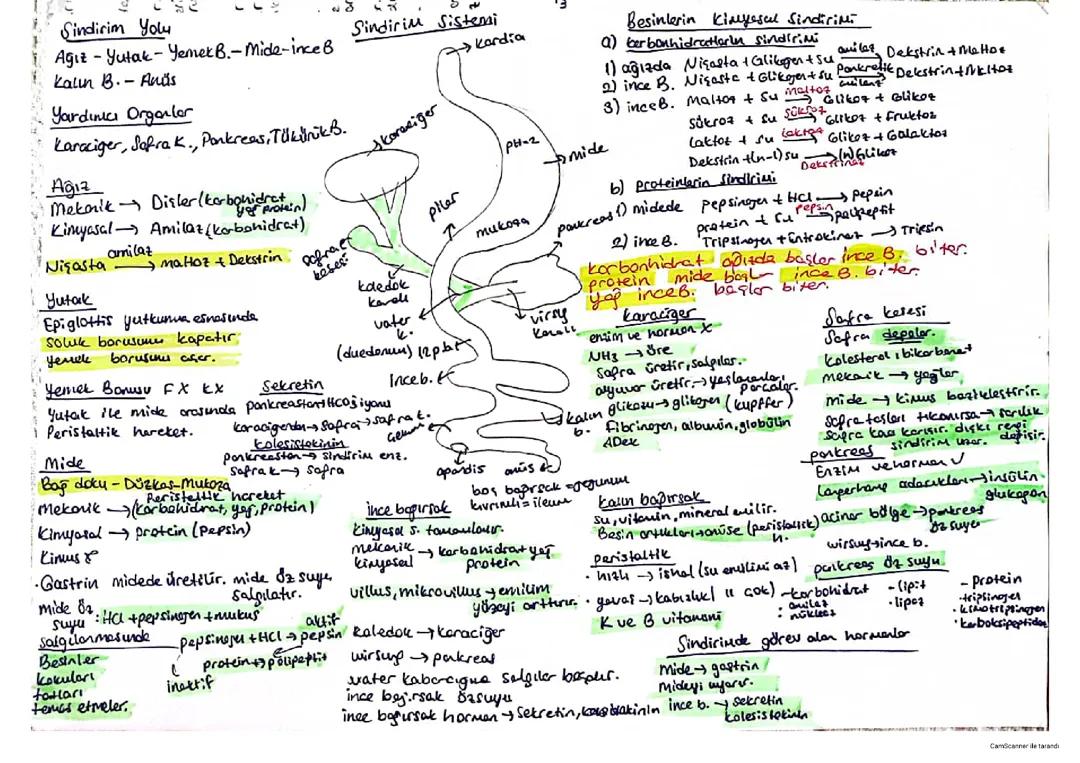 Sindirim Sistemi
Sindirim Yolu
Ağız - Yutak - Yemek B. - Mide - ince B
Kalın B. - Anüs
Yardımcı Organlar
Karaciğer, Safra K., Pankreas, Tükürük B.
Ağız
Mekanik → Dişler (karbohidrat
yağ protein)
Kimyasal → Amilaz (karbohidrat)
Nişasta amilaz → maltoz + Dekstrin
Yutak
Epiglottis yutkunma esnasında
soluk borusunu kapatır
yemek borusunu açar.
Yemek Borusu FX KX
Yutak ile mide arasında
Peristaltik hareket.
Sekretin
Pankreastan HCO3 iyonu
karaciğerden → safra → safra k.
Kolesistokinin
pankreastan → sindirim enz.
safra k → safra
Mide
Bağ doku - Düzkas - Mukoza
Peristeltik hareket
Mekanik → (karbohidrat, yağ, protein)
Kimyasal → protein (Pepsin)
Kimus
• Gastrin midede üretilir. mide öz suyu
salgılatır.
mide öz
suyu : HCl + pepsinojen + mukus
salgılanmasında
Besinler
kokuları
tatları
temas etmeler.
aktif
pepsinojen + HCl → pepsin
protein → polipeptit
inaktif
kardia
karaciğer
PH=2
mide
pilor
mukoza
pankreas
safra
kesesi
koledok
kanalı
vater
k.
virsung
kanalı
(duedonum) 12 p.b
İnce b.
kalın
b.
apandis
anüs
boş bağırsak = jejunum
kıvrımlı = ileum
ince bağırsak
Kimyasal s. tamamlanır.
mekanik
kimyasal → karbohidrat yağ
protein
villus, mikrovillus → emilim
yüzeyi arttırır.
Koledok → karaciğer
wirsung → pankreas
vater kabarcığına salgılar boşalır.
ince bağırsak özsuyu
ince bağırsak hormon → Sekretin, kolesistokinin
Besinlerin Kimyasal Sindirimi
a) karbonhidratların sindirimi
1) ağızda Nişasta + Glikojen + su amilaz → Dekstrin + Maltoz
2) ince B. Nişasta + Glikojen + su Pankretik amilaz → Dekstrin + Maltoz
3) ince B. Maltoz + Su maltaz → Glikoz + Glikoz
Sükroz + su sükraz → Glikoz + Fruktoz
Laktoz + su laktaz → Glikoz + Galaktoz
Dekstrin + (n-1) su Dekstrinaz → (n) Glikoz
b) proteinlerin sindirimi
1) midede pepsinojen + HCl → Pepsin
protein + su pepsin → polipeptit
2) ince B. Tripsinojen + Entrokinaz → Tripsin
karbonhidrat ağızda başlar ince B. biter.
protein mide başl ince B. biter.
yağ ince B. başlar biter.
karaciğer
enzim ve hormon X
NH3 → üre
Safra üretir, salgılar.
alyuvar üretir → yaşlananları
parçalar.
glikozu → glikojen (kupffer)
Fibrinojen, albumin, globülin
ADEK
Safra kesesi
Safra depolar.
kolesterol, bikarbonat
mekanik → yağlar
Mide → kimus bazikleştirir.
Safra taşları tıkanırsa → sarılık
safra kana karışır. dışkı rengi
sindirim uzar. değişir.
pankreas
Enzim ve hormon √
Langerhans adacıkları → insülin
glukagon
acinar bölge → pankreas
öz suyu
wirsung → ince b.
pankreas öz suyu
- karbohidrat
• amilaz
• nükleaz
- lipit
• lipaz
- Protein
• tripsinojen
• kimotripsinojen
• karboksipeptidaz
Kalın bağırsak
su, vitamin, mineral emilir.
Besin artıkları → anüse (peristaltik)
h.
peristaltik
• hızlı → ishal (su emilimi az)
• yavaş → kabızlık ( " çok)
K ve B vitamini
Sindirimde görev alan hormonlar
Mide → gastrin
Mideyi uyarır.
ince b. → sekretin
kolesistokinin
CamScanner ile tarandı